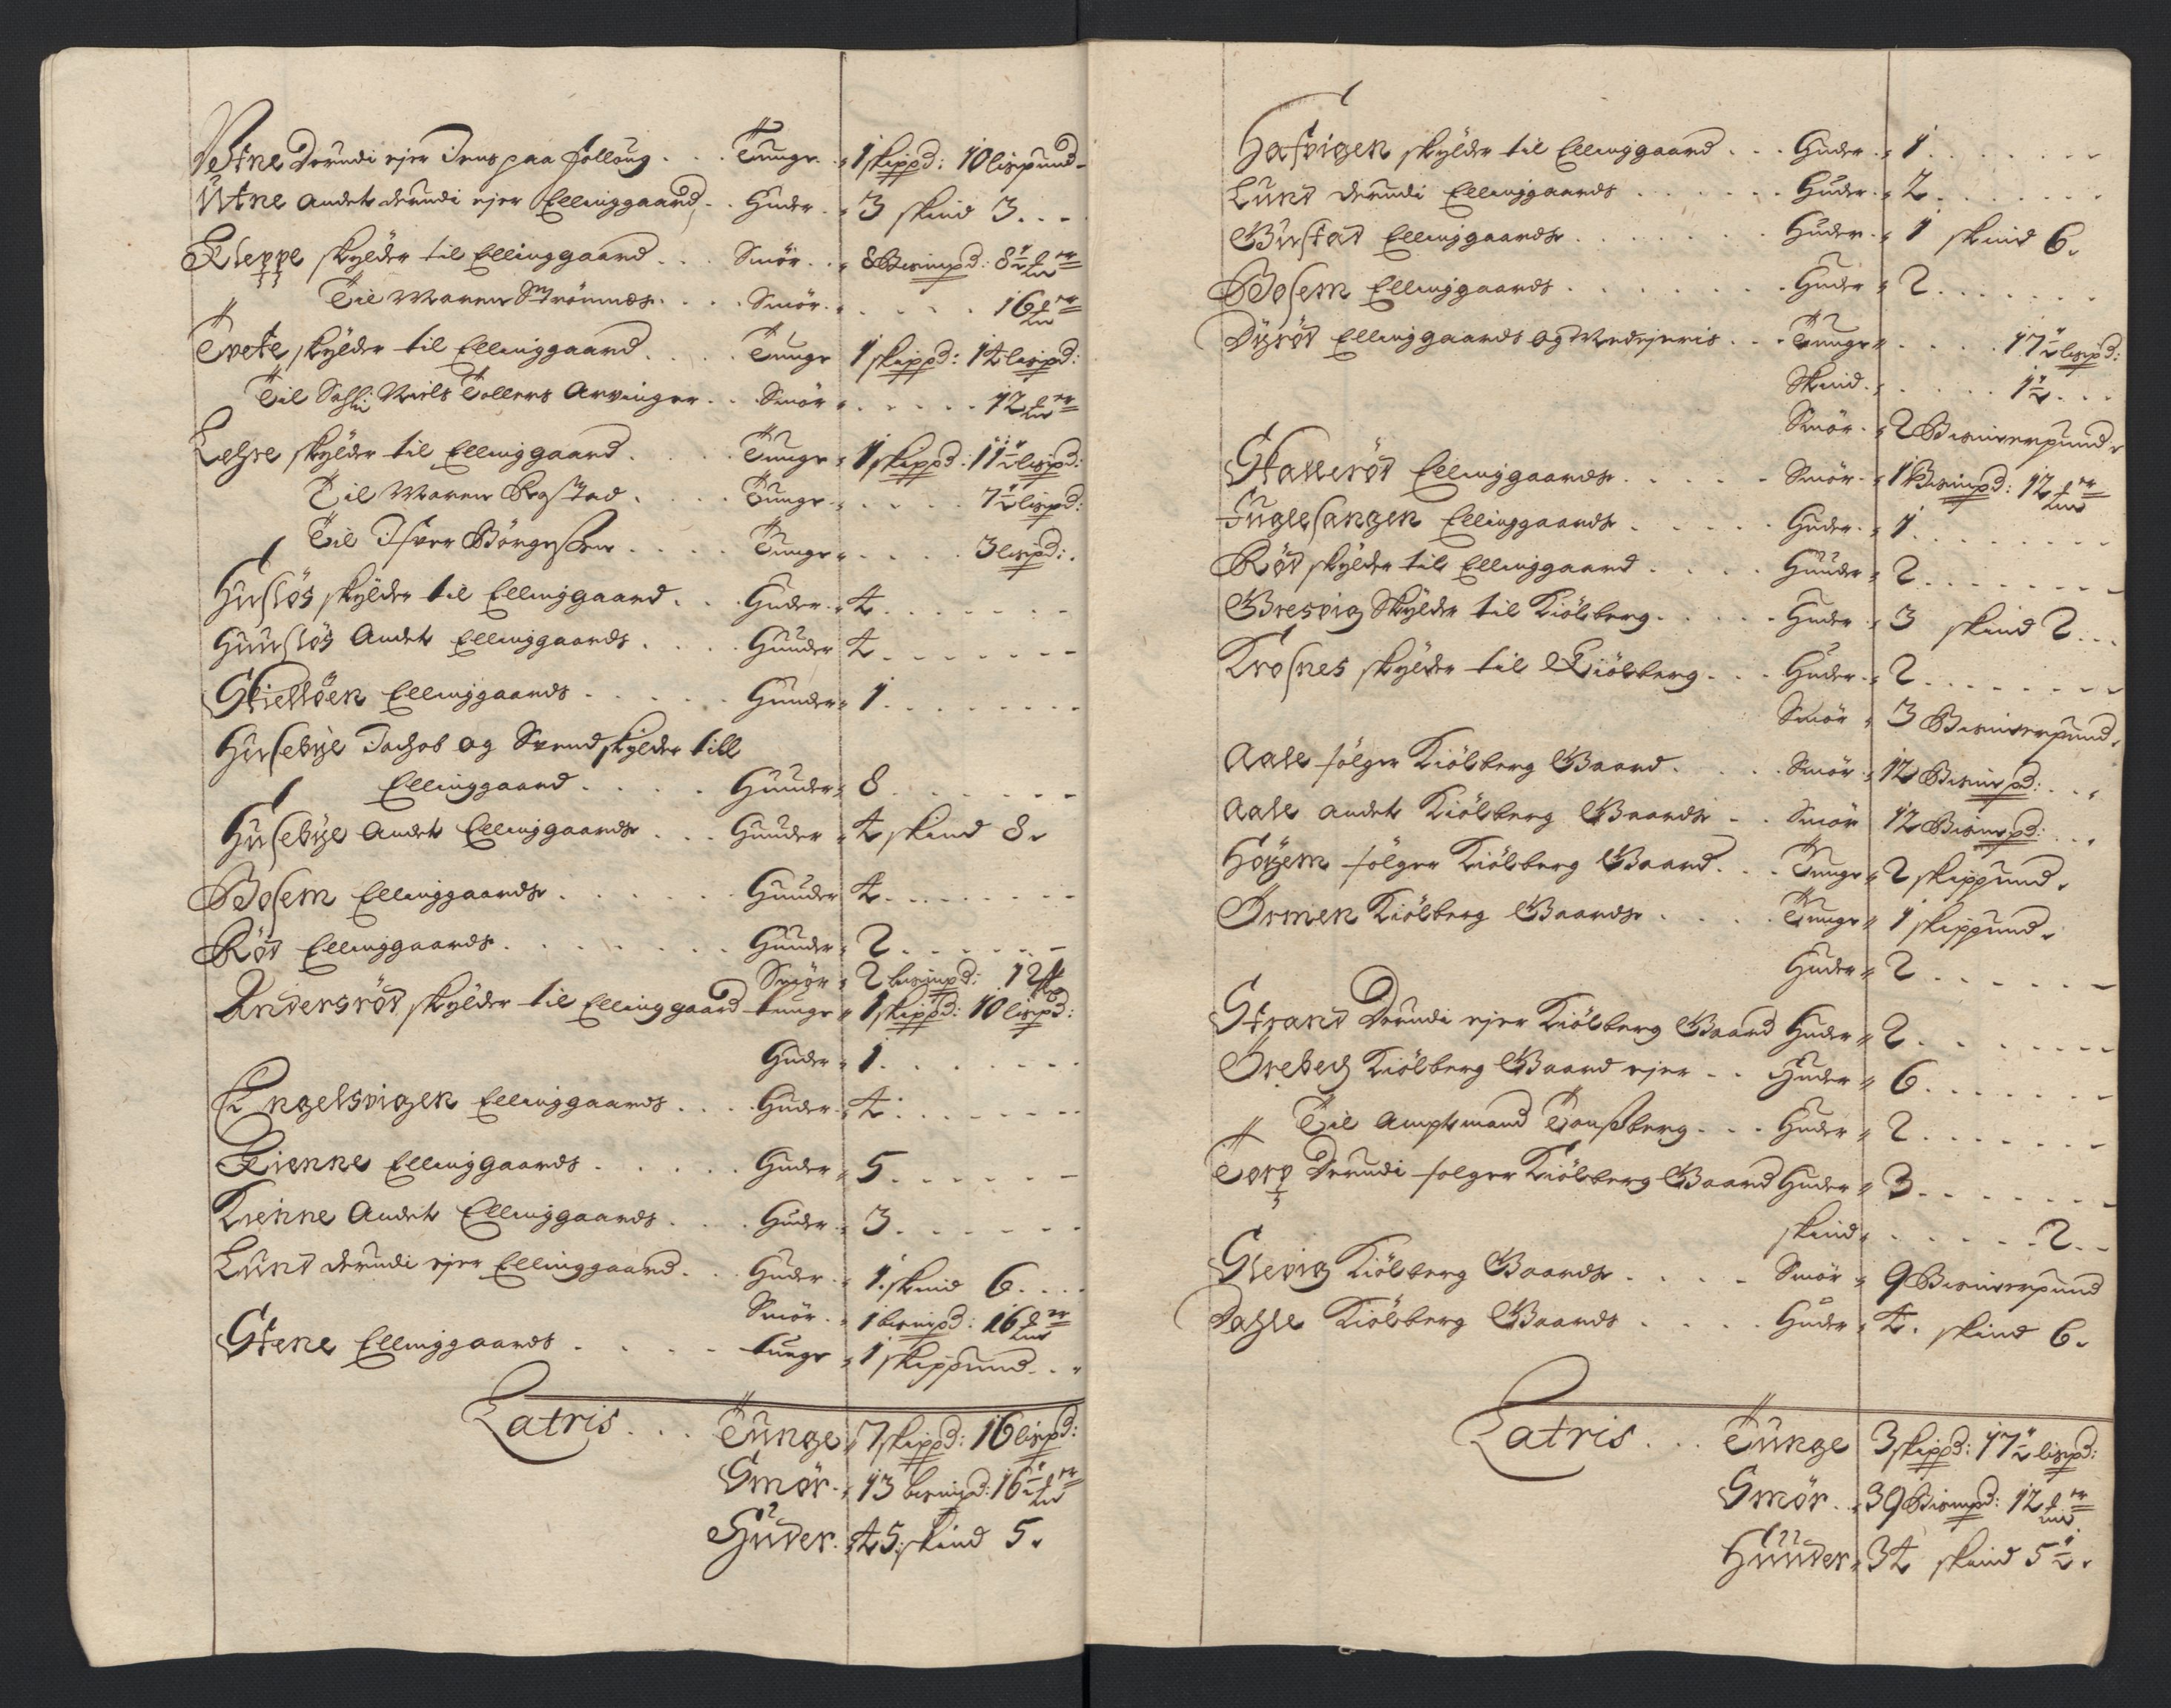 Utne Derudi ejer Jens paa Follong . . . Tunge . . 1 skippd: 10 lispund
Utne Andet derudi ejer Ellinggaard . . Huder . . 3 skind 3 . . .
Kleppe skylder til Ellinggaard . . . Smör . . 8 Bismpd: 8½
" Til Maren Strömnes . . . . Smör . . . . . . 16
Tvete skylder til Ellinggaard . . . . Tunge 1 skippd: 14 lispd:
Til Sahl: Niels Tollers Arvinger . . Smör . . . . . . 12
Lehne skylder til Ellinggaard . . . Tunge . 1 skippd: 11½ lispd:
Til Maren Bogstad . . . . Tunge . . . . . 7½ lispd:
Til Ifver Börgesen . . . . Tunge . . . . . 3 lispd:
Huslös skylder til Ellinggaard . . . Huder . . 4 . . . . .
Huuslös Andet Ellinggaards . . . . Huuder 4 . . . . . .
Skielöen Ellinggaards . . . . . Huuder . 1 . . . . . .
Husebye Jachob og Svend skylder till
Ellinggaard . . . . Huuder . 8 . . . . .
Husebye Andet Ellinggaards . . . Huuder . 4 skind 8.
Bosem Ellinggaards . . . . . . Huuder 4 . . . . . .
Röd Ellinggaards . . . . . . . Huuder . 2 . . . . .
Smör . 2 bismpd: 12
Andersröd skylder til Ellinggaard tunge . 1 skippd: 10 lispd:
Huder . 1 . . . . .
Engelsvigen Ellinggaards . . . . Huder . . 4 . . . . .
Kienne Ellinggaards . . . . . Huder . 5 . . . . .
Kienne Andet Ellinggaards . . . . Huder . . 3 . . . . .
Lund derudi ejer Ellinggaard . . . Huder . . 1. skind 6 . . .
Smör . . 1 bismpd: 16
Stene Ellinggaards . . . . . tunge . 1 skippund . .
Latris . . . Tunge . 7 skippd: 16 lispd:
Smör . . 13 bismpd: 16½
Huder . . 45 skind 5.
Hafvigen skylder til Ellinggaard . . . Huder . . 1 . . . . .
Lund derudi Ellinggaards . . . . . . Huder . . 2 . . . . .
Bustad Ellinggaards . . . . . . . Huder . . 1 skind 6.
Bosem Ellinggaards . . . . . . . Huder . 2 . . . . .
Dyröd Ellinggaards og Medejeris . . . Tunge . . . . . 17½ lispd:
Skind . . . . . . 1½ . . .
Smör . . 2 Bismerpund
Stalleröd Ellinggaards . . . . . Smör . . 1 Bismpd: 12
Fuglesangen Ellinggaards . . . . . Huder . . 1 . . . . .
Röd skylder til Ellinggaard . . . . Huuder . 2 . . . . .
Gresvig Skylder til Kiölberg . . . . . Huder . . 3 skind 2 . . .
Krosnes skylder til Kiölberg . . . Huder . . 2 . . . . .
Smör . 3 Bismerpund.
Aale fölger Kiölberg Gaard . . . . Smör . . 12 Bismpd: . . .
Aale andet Kiölberg Gaards . . Smör 12 Bismpd: . . .
Höyem fölger Kiölberg Gaard . . . Tunge . 2 skippund.
Ormen Kiölberg Gaards . . . . . Tunge . 1 skippund.
Huder . 2 . . . . .
Strand Derudi ejer Kiölberg Gaard Huder . 2 . . . . .
Örebech Kiölberg Gaard ejer . . Huder . 6 . . . . .
" Til Amptmand Tonsberg . . . Huder . 2 . . . . .
Torp Derudi folger Kiölberg Gaard Huder . 3 . . . . .
skind . . . . . . 2 . .
Slevig Kiölberg Gaards . . . . Smör . 9 Bismerpund
Dahle Kiölberg Gaards . . . . . Huder . 4. skind 6.
Latris . . . Tunge 3 skippd: 17½ lispd:
Smör . . 39 Bismpd: 12
Huuder . 34 skind 5½.